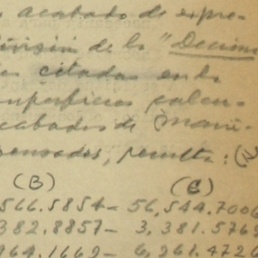 acabado de expre-
división de la "Decima
es citadas en la
superficies calcu-
acabados de
pensados, resulta: (N)
(B) (C)
566.5854- 56,544.7006
382,8857- 3,381.5769
964.1669- 6,261.4720